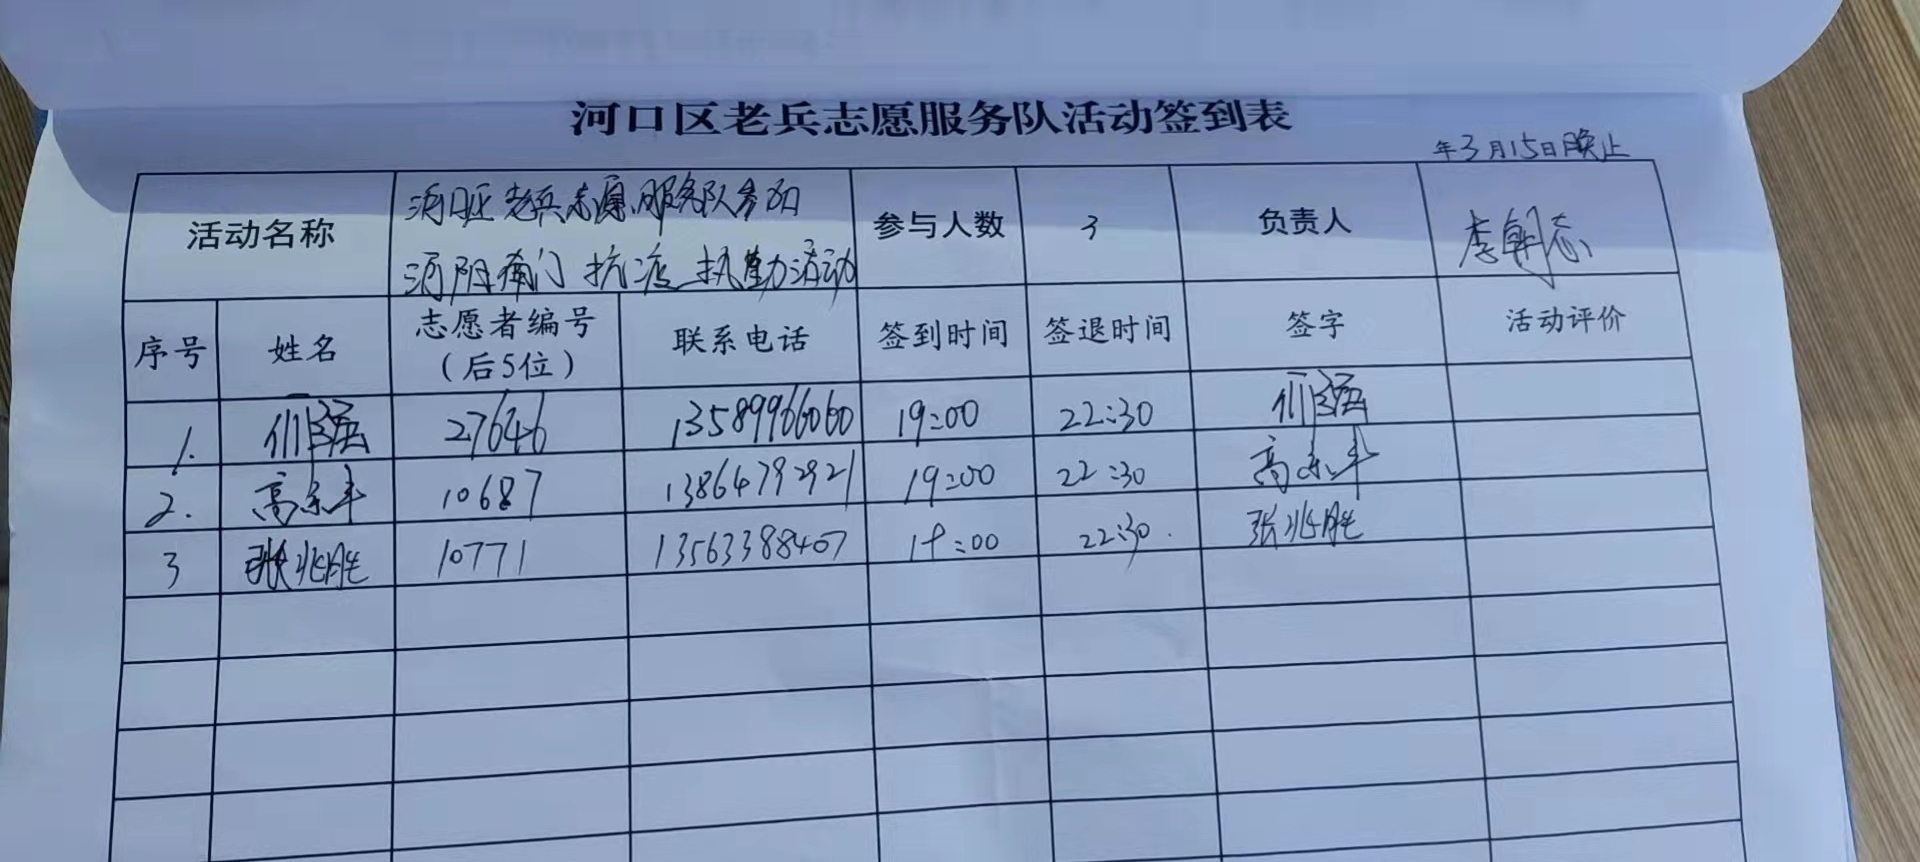 河口区老兵志愿服务队活动签到表
年3月15日晚上
活动名称 河口区老兵志愿服务队参加 参与人数 3 负责人 李朝志
河阳南门抗疫执勤活动
序号 姓名 志愿者编号 联系电话 签到时间 签退时间 签字 活动评价
(后5位)
1. 27646 13589966060 19:00 22:30
2. 高东平 10687 13864792921 19:00 22:30 高东平
3 张兆胜 10771 13563388407 19:00 22:30. 张兆胜